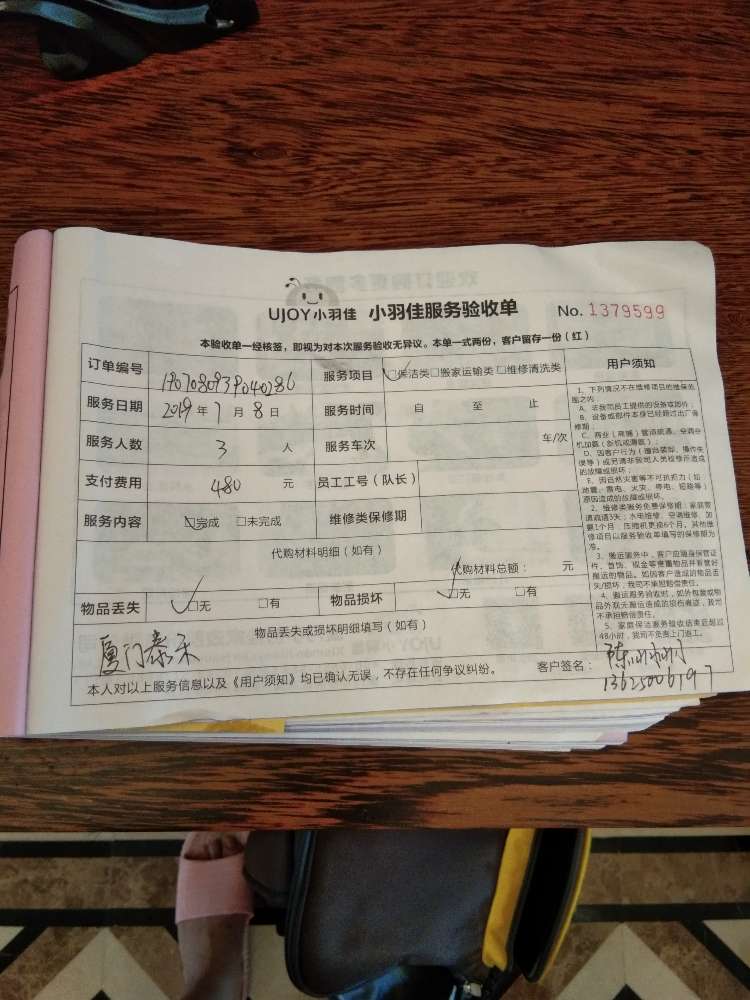 UJOY小羽佳 小羽佳服务验收单 No. 1379599
本验收单一经核签，即视为对本次服务验收无异议。本单一式两份，客户留存一份（红）
订单编号 1907080939040286 服务项目 ☑保洁类□搬家运输类□维修清洗类
服务日期 2019年7月8日 服务时间 自 至 止
服务人数 3 人 服务车次 车/次
支付费用 480 元 员工工号（队长）
服务内容 ☑完成 □未完成 维修类保修期
代购材料明细（如有）
代购材料总额： 元
物品丢失 ☑无 □有 物品损坏 ☑无 □有
物品丢失或损坏明细填写（如有）
厦门泰禾
客户签名：
13625006197
本人对以上服务信息以及《用户须知》均已确认无误，不存在任何争议纠纷。
用户须知
1、下列情况不在维修项目的维保范
围之内
A、非我司员工提供的设备或部件；
B、设备或部件本身已经超过出厂保
修期；
C、商业（商铺）管道疏通、空调非
机加氨（拆机或漏氨）；
D、因客户行为（擅自装卸、操作失
误等）或另请非我司人员检修所造成
的故障或损坏；
E、因自然灾害等不可抗拒力（如
地震、雷电、火灾、停电、短路等）
原因造成的故障或损坏。
2、维修类服务免费保修期：家庭管
道疏通3天；水电维修、空调维修、加
氨1个月；压缩机更换6个月。其他维
修项目以服务验收单填写的保修期为
准。
3、搬运服务中，客户应随身保管证
件、首饰、现金等贵重物品并看管好
搬运的物品。如因客户造成的物品丢
失/损坏，我司不承担赔偿责任。
4、搬运服务验收时，如外包装或物
品外观无搬运造成的损伤痕迹，我司
不承担赔偿责任。
5、家庭保洁服务验收结束后超过
48小时，我司不负责上门返工。